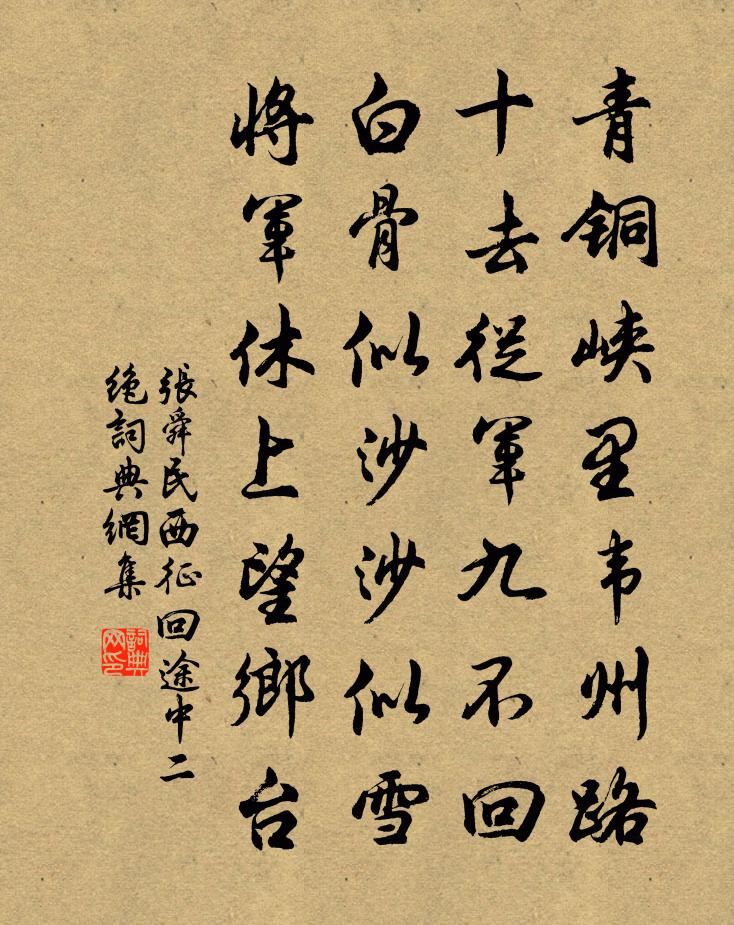 青銅峽里韦州路
十去從軍九不回
白骨似沙沙似雪
將軍休上望鄉台
張舜民西征回途中二
絶詞典網集
詞典
网印